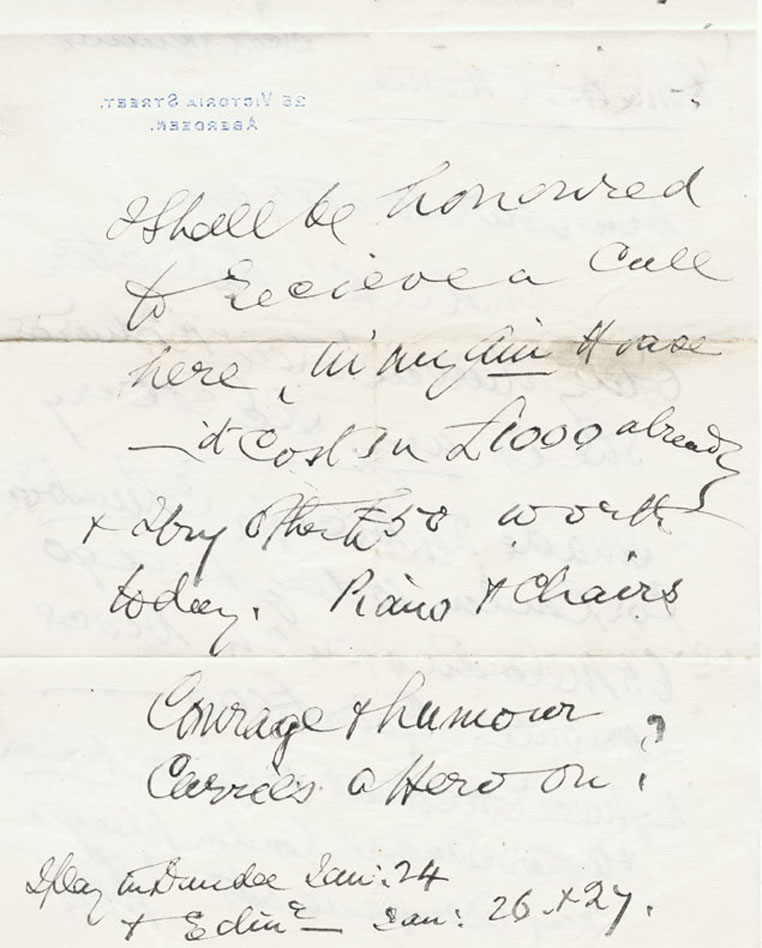 25 VICTORIA STREET,
ABERDEEN.
I Shall be honoured
to Recieve a Call
here, in my Ain House
— it Cost Su £1000 already
+ I buy other £50 worth
today. Piano & Chairs
Courage & humour
Carries a Hero on ?
I play in Dundee Jan: 24
+ Edinr — Jan: 26 + 27.